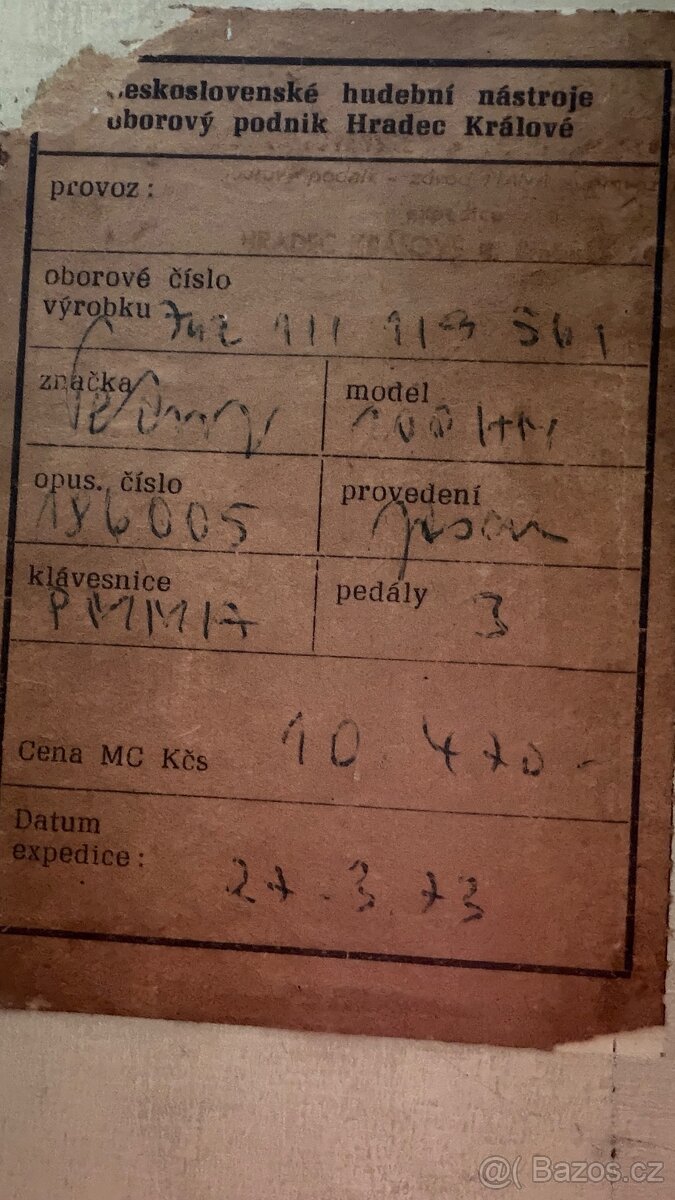 eskoslovenské hudební nástroje
oborový podnik Hradec Králové
expedice
HRADEC KRÁLOVÉ
provoz:
oborové číslo
výrobku 742 111 113 561
značka
model
opus. číslo
186005
provedení
klávesnice
PMMA
pedály 3
Cena MC Kčs 10.470.-
Datum
expedice: 27.3.73
@( Bazos.cz